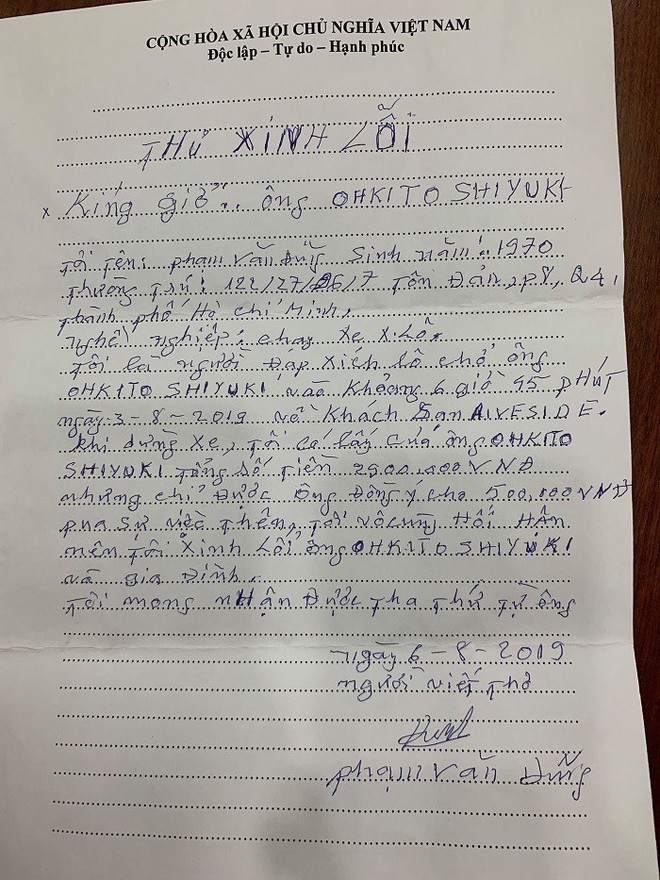 CỘNG HÒA XÃ HỘI CHỦ NGHĨA VIỆT NAM
Độc lập – Tự do – Hạnh phúc
THƯ XINH LỖI
x Kíng giở... ông OHKITO SHIYUKI
Tôi tên: phạm văn Dũng Sinh năm: 1970
Thường trú: 122/27/26/7 Tôn Đản, P8, Q4,
thành phố Hồ Chí Minh,
nghề nghiệp: chạy xe X.Lô.
Tôi là người Đạp xích lô chở ông
OHKITO SHIYUKI vào khoảng 6 giờ 45 PHÚT
ngày 3-8-2019 về Khách Sạn RIVESIDE.
khi dừng xe, tôi có lấy của ông OHKITO
SHIYUKI tổng số tiền 2900.000 VNĐ
nhưng chỉ Được ông Đồng ý cho 500.000 VNĐ
qua Sự việc Thên, tôi vô cùng Hối Hận
nên tôi Xinh Lỗi ông OHKITO SHIYUKI
và gia Đình.
Tôi mong nHận Được Tha Thứ Từ ông
ngày 6-8-2019
người viết Thơ
phạm văn Dũng